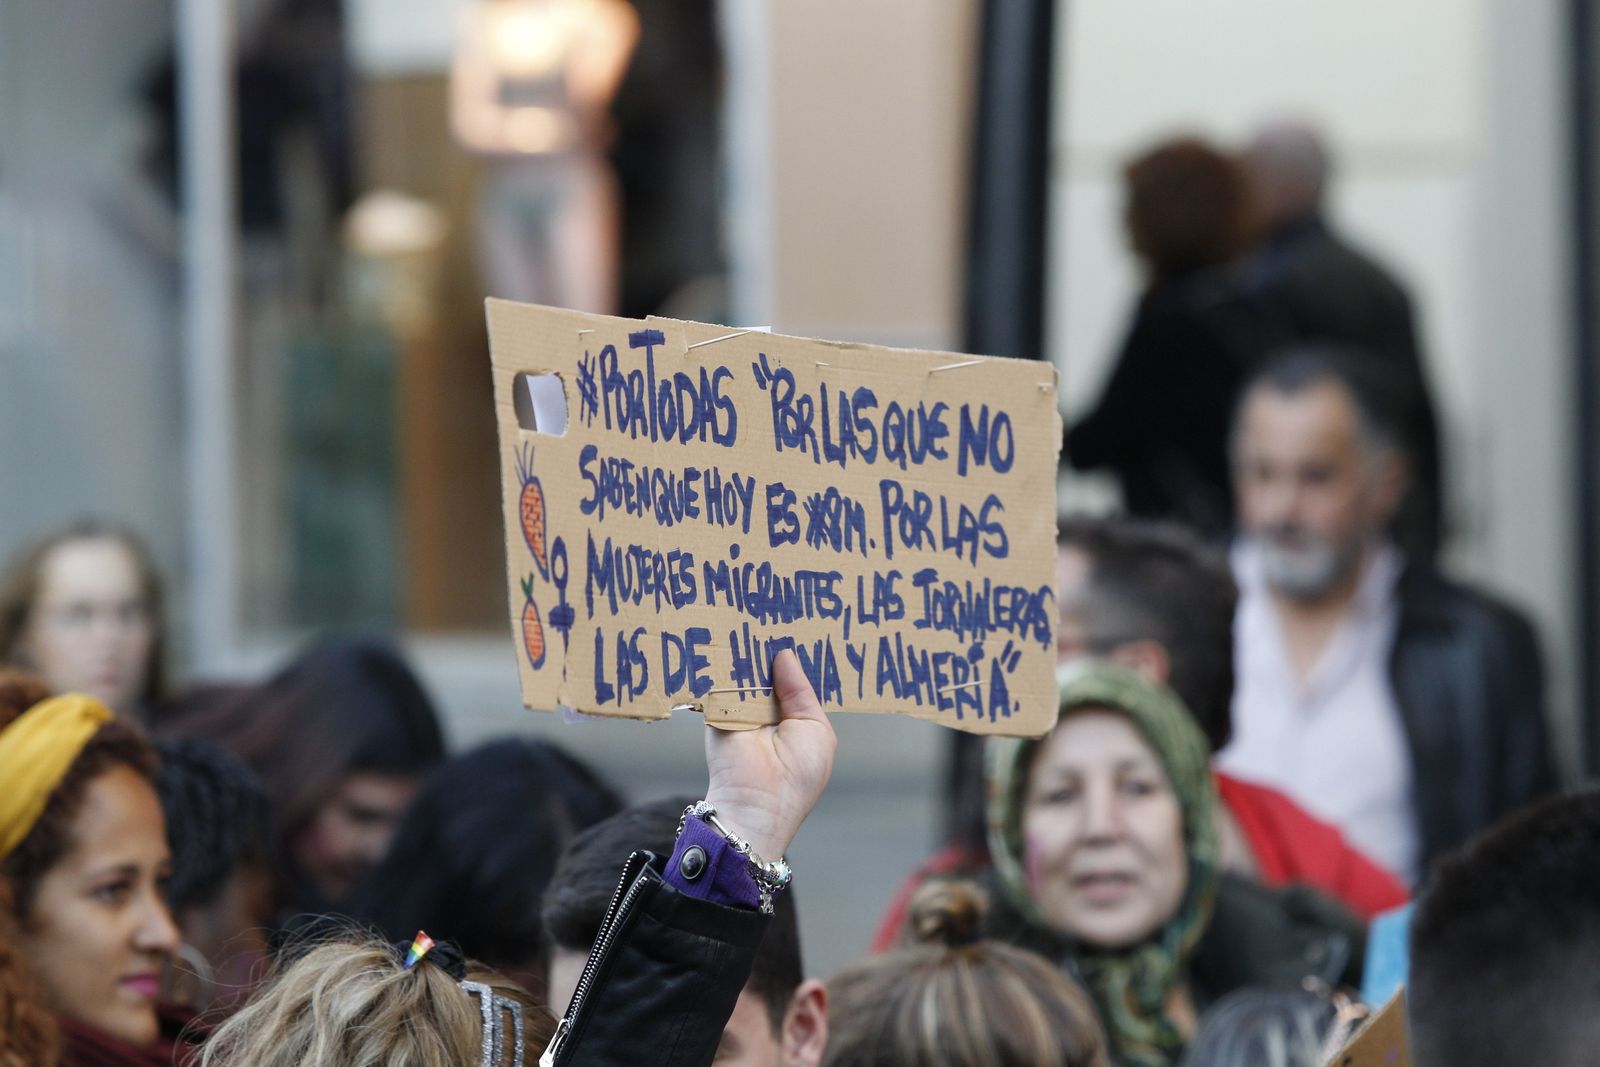 #PORTODAS "POR LAS QUE NO
SABEN QUE HOY ES #8M. POR LAS
MUJERES MIGRANTES, LAS JORNALERAS,
LAS DE HUELVA Y ALMERÍA".